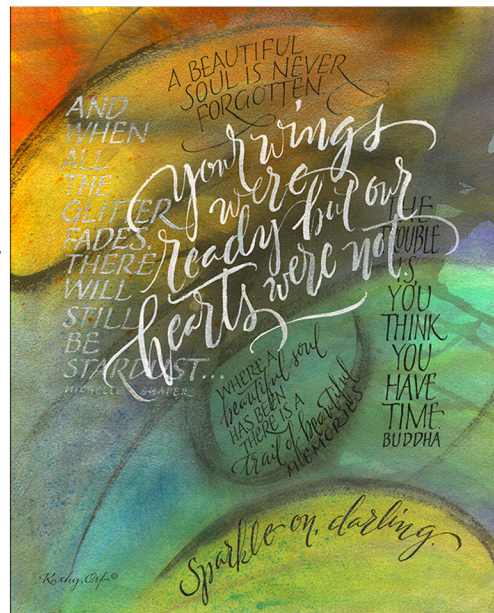 A BEAUTIFUL
SOUL IS NEVER
FORGOTTEN
AND
WHEN
ALL
THE
GLITTER
FADES.
THERE
WILL
STILL
BE
STARDUST...
MICHELLE
your wings
were
ready but our
hearts were not
THE
TROUBLE
IS,
YOU
THINK
YOU
HAVE
TIME.
BUDDHA
WHERE A
beautiful soul
HAS BEEN
THERE IS A
trail of beautiful
MEMORIES
Sparkle on, darling.
Kathy Orf ©